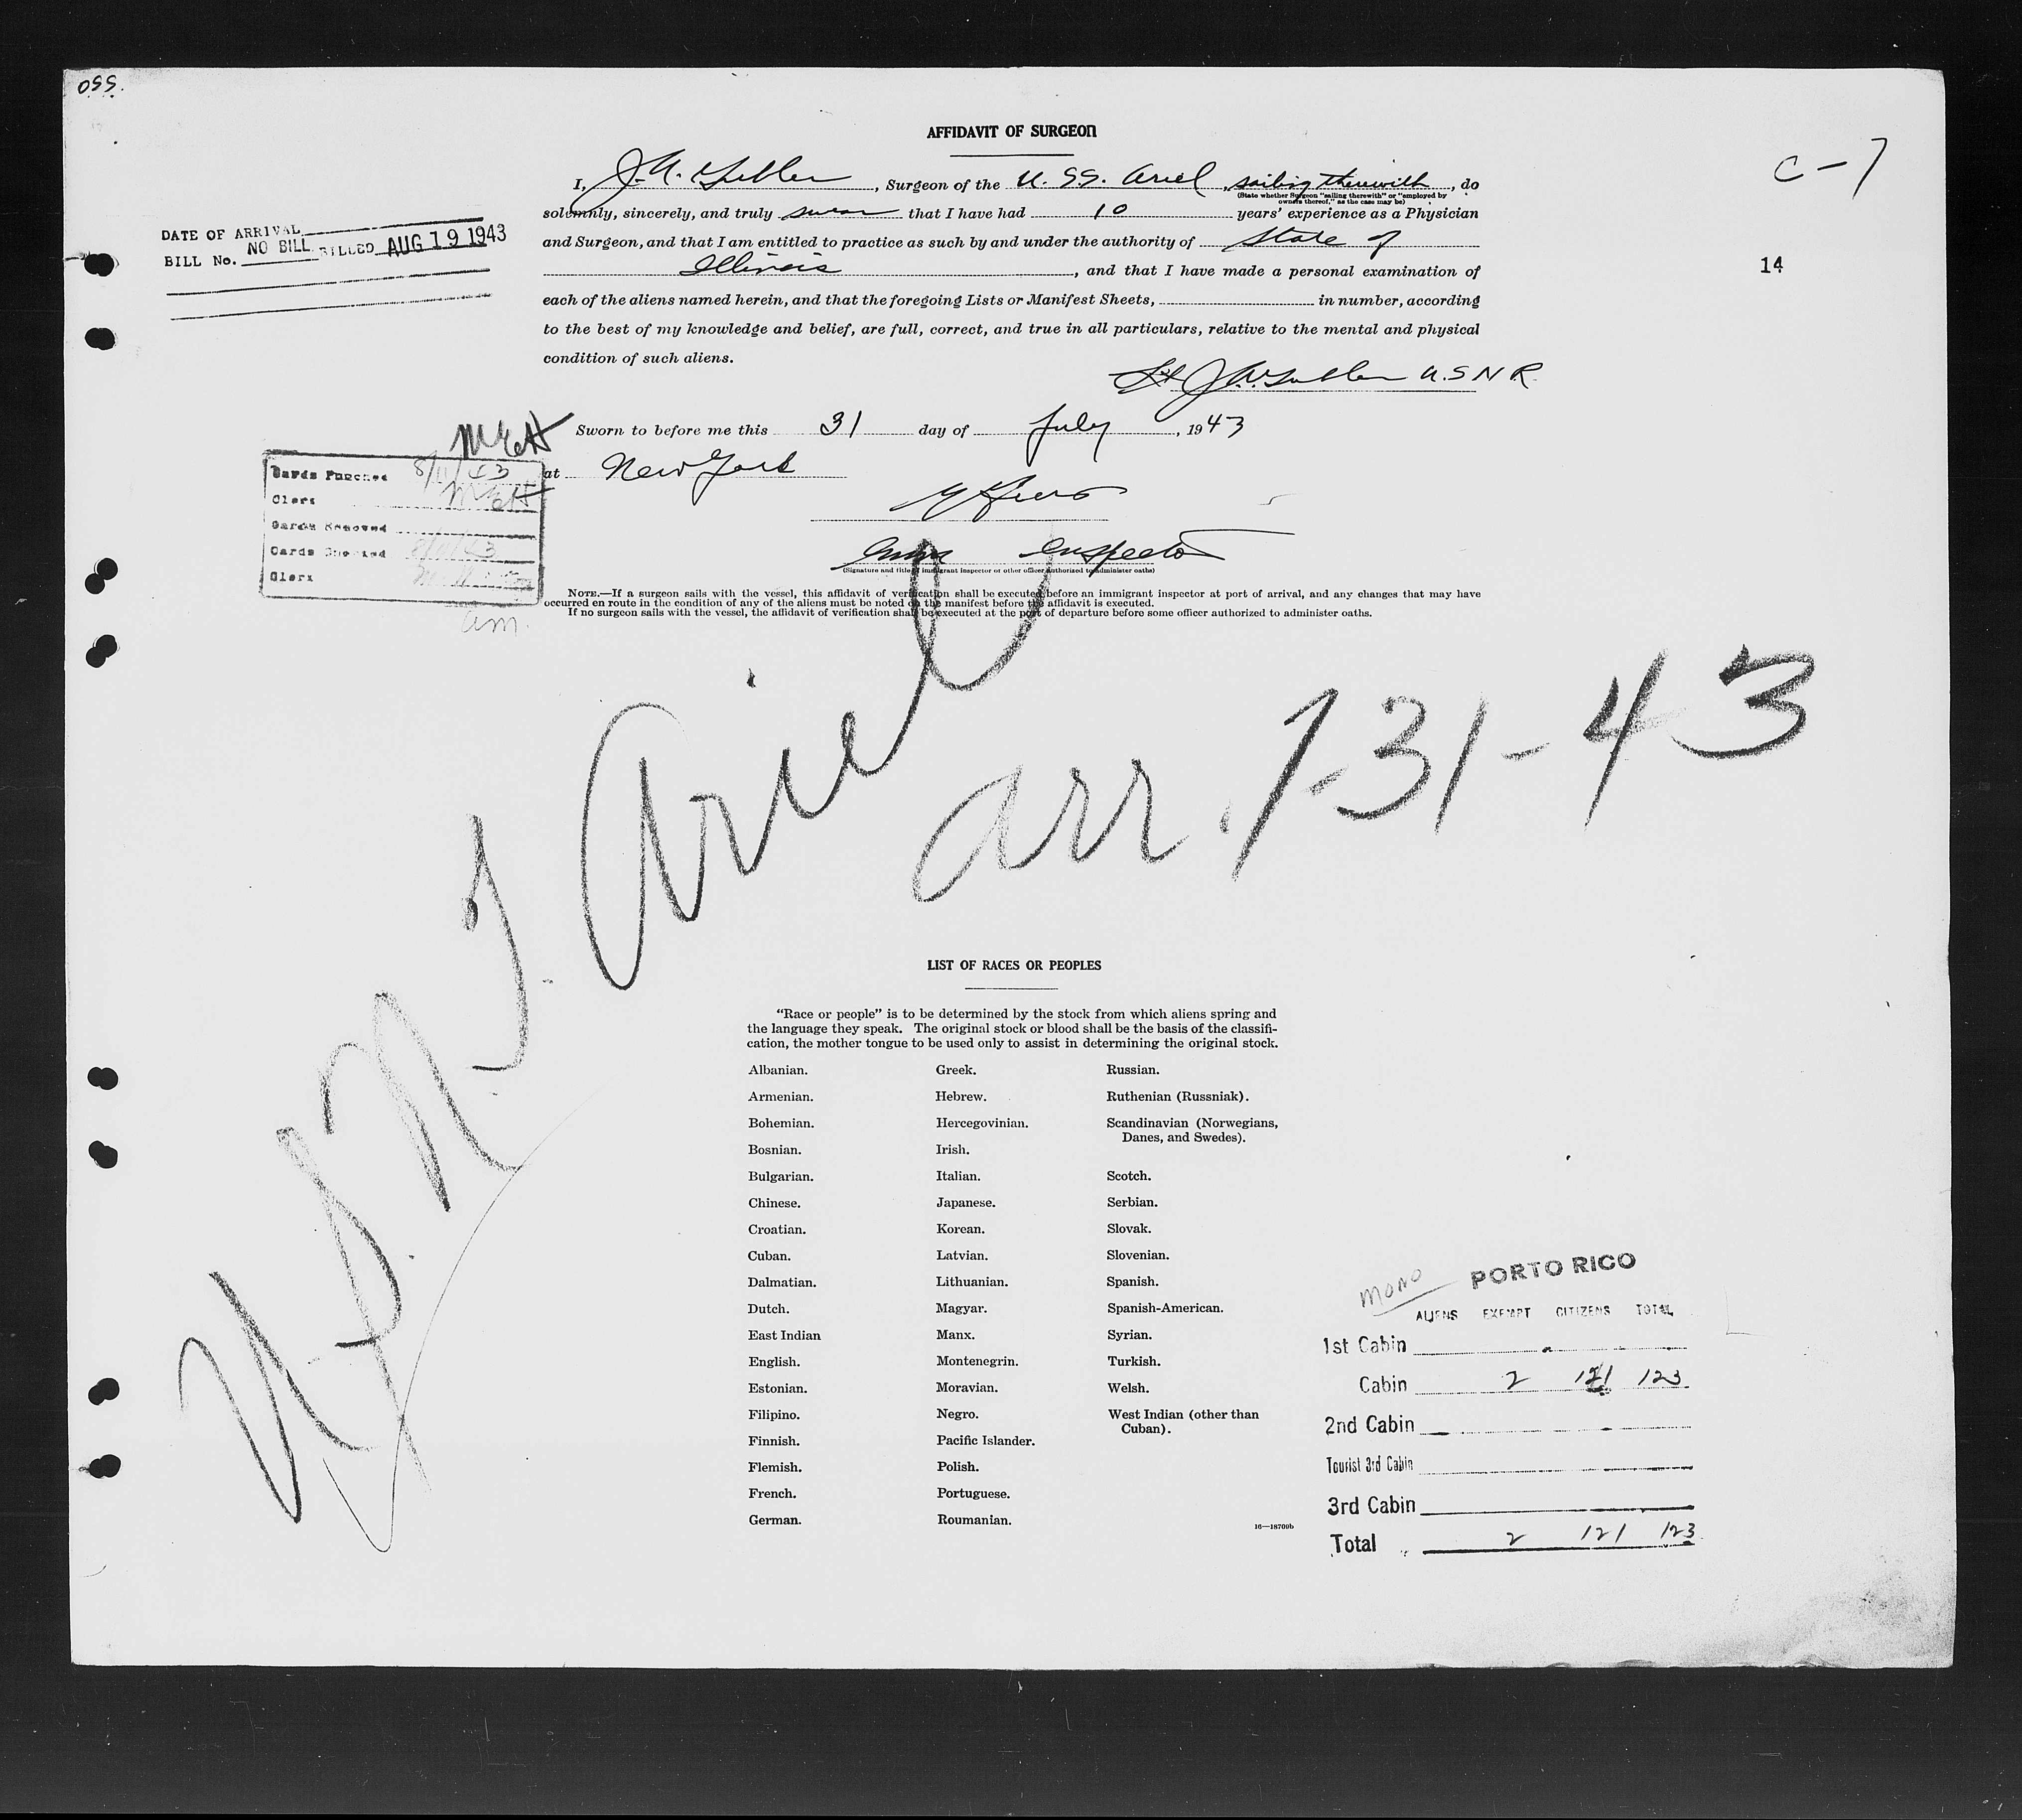 055.
AFFIDAVIT OF SURGEON
C-7
I, J. A. , Surgeon of the U. S.S. Ariel, sailing therewith, do
(State whether Surgeon "sailing therewith" or "employed by
owners thereof," as the case may be)
solemnly, sincerely, and truly swear that I have had 10 years' experience as a Physician
and Surgeon, and that I am entitled to practice as such by and under the authority of State of
Illinois, and that I have made a personal examination of
each of the aliens named herein, and that the foregoing Lists or Manifest Sheets, in number, according
to the best of my knowledge and belief, are full, correct, and true in all particulars, relative to the mental and physical
condition of such aliens.
DATE OF ARRIVAL
BILL No. NO BILL BILLED AUG 19 1943
14
Lt J. A. U.S.N.R.
Sworn to before me this 31 day of July, 1943
at New York
Inspector
(Signature and title of immigrant inspector or other officer authorized to administer oaths)
Cards Punched 8/11/43
Clerk
Cards Removed
Cards Checked
Clerk
NOTE.—If a surgeon sails with the vessel, this affidavit of verification shall be executed before an immigrant inspector at port of arrival, and any changes that may have
occurred en route in the condition of any of the aliens must be noted on the manifest before the affidavit is executed.
If no surgeon sails with the vessel, the affidavit of verification shall be executed at the port of departure before some officer authorized to administer oaths.
Ariel
arr. 7-31-43
LIST OF RACES OR PEOPLES
"Race or people" is to be determined by the stock from which aliens spring and
the language they speak. The original stock or blood shall be the basis of the classifi-
cation, the mother tongue to be used only to assist in determining the original stock.
Albanian.
Armenian.
Bohemian.
Bosnian.
Bulgarian.
Chinese.
Croatian.
Cuban.
Dalmatian.
Dutch.
East Indian
English.
Estonian.
Filipino.
Finnish.
Flemish.
French.
German.
Greek.
Hebrew.
Hercegovinian.
Irish.
Italian.
Japanese.
Korean.
Latvian.
Lithuanian.
Magyar.
Manx.
Montenegrin.
Moravian.
Negro.
Pacific Islander.
Polish.
Portuguese.
Roumanian.
Russian.
Ruthenian (Russniak).
Scandinavian (Norwegians,
Danes, and Swedes).
Scotch.
Serbian.
Slovak.
Slovenian.
Spanish.
Spanish-American.
Syrian.
Turkish.
Welsh.
West Indian (other than
Cuban).
16—18709b
MONO PORTO RICO
ALIENS EXEMPT CITIZENS TOTAL
1st Cabin
Cabin 2 121 123
2nd Cabin
Tourist 3rd Cabin
3rd Cabin
Total 2 121 123